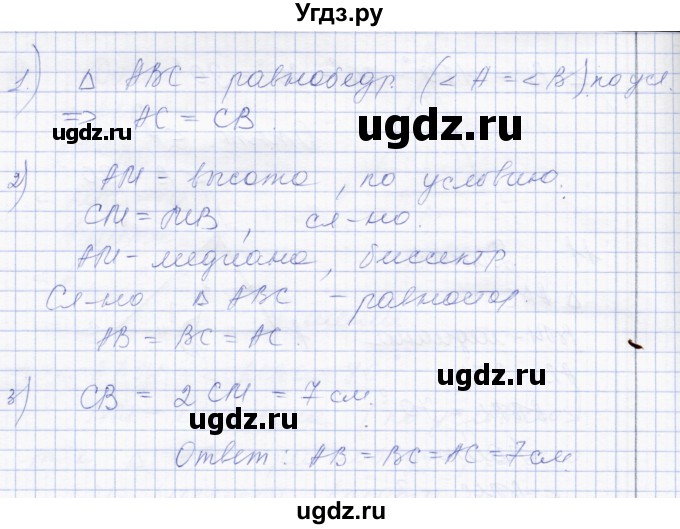 Угдз.ру
1.) Δ ABC - равнобедр. (< A = < B) по усл.
=> AC = CB.
ugdz.ru
ugdz.ru
ugdz.ru
2) AM - высота, по условию.
CM = MB, сл-но.
AM - медиана, биссектр.
ugdz.ru
Сл-но Δ ABC - равностор.
AB = BC = AC.
ugdz.ru
3) CB = 2 CM = 7 см.
ugdz.ru
Ответ: AB = BC = AC = 7 см
ugdz.ru
ugdz.ru
ugdz.ru